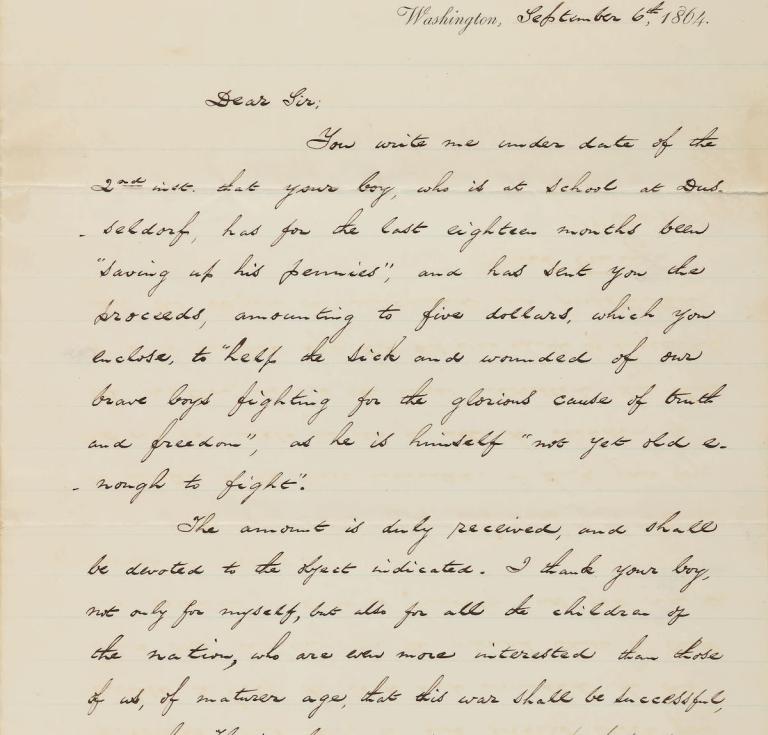 Washington, September 6th, 1864.
Dear Sir;
You write me under date of the
2nd inst. that your boy, who is at school at Dus-
-seldorf, has for the last eighteen months been
"saving up his pennies", and has sent you the
proceeds, amounting to five dollars, which you
enclose, to "help the sick and wounded of our
brave boys fighting for the glorious cause of truth
and freedom", as he is himself "not yet old e-
-nough to fight".
The amount is duly received, and shall
be devoted to the object indicated. I thank your boy,
not only for myself, but also for all the children of
the nation, who are even more interested than those
of us, of maturer age, that this war shall be successful,